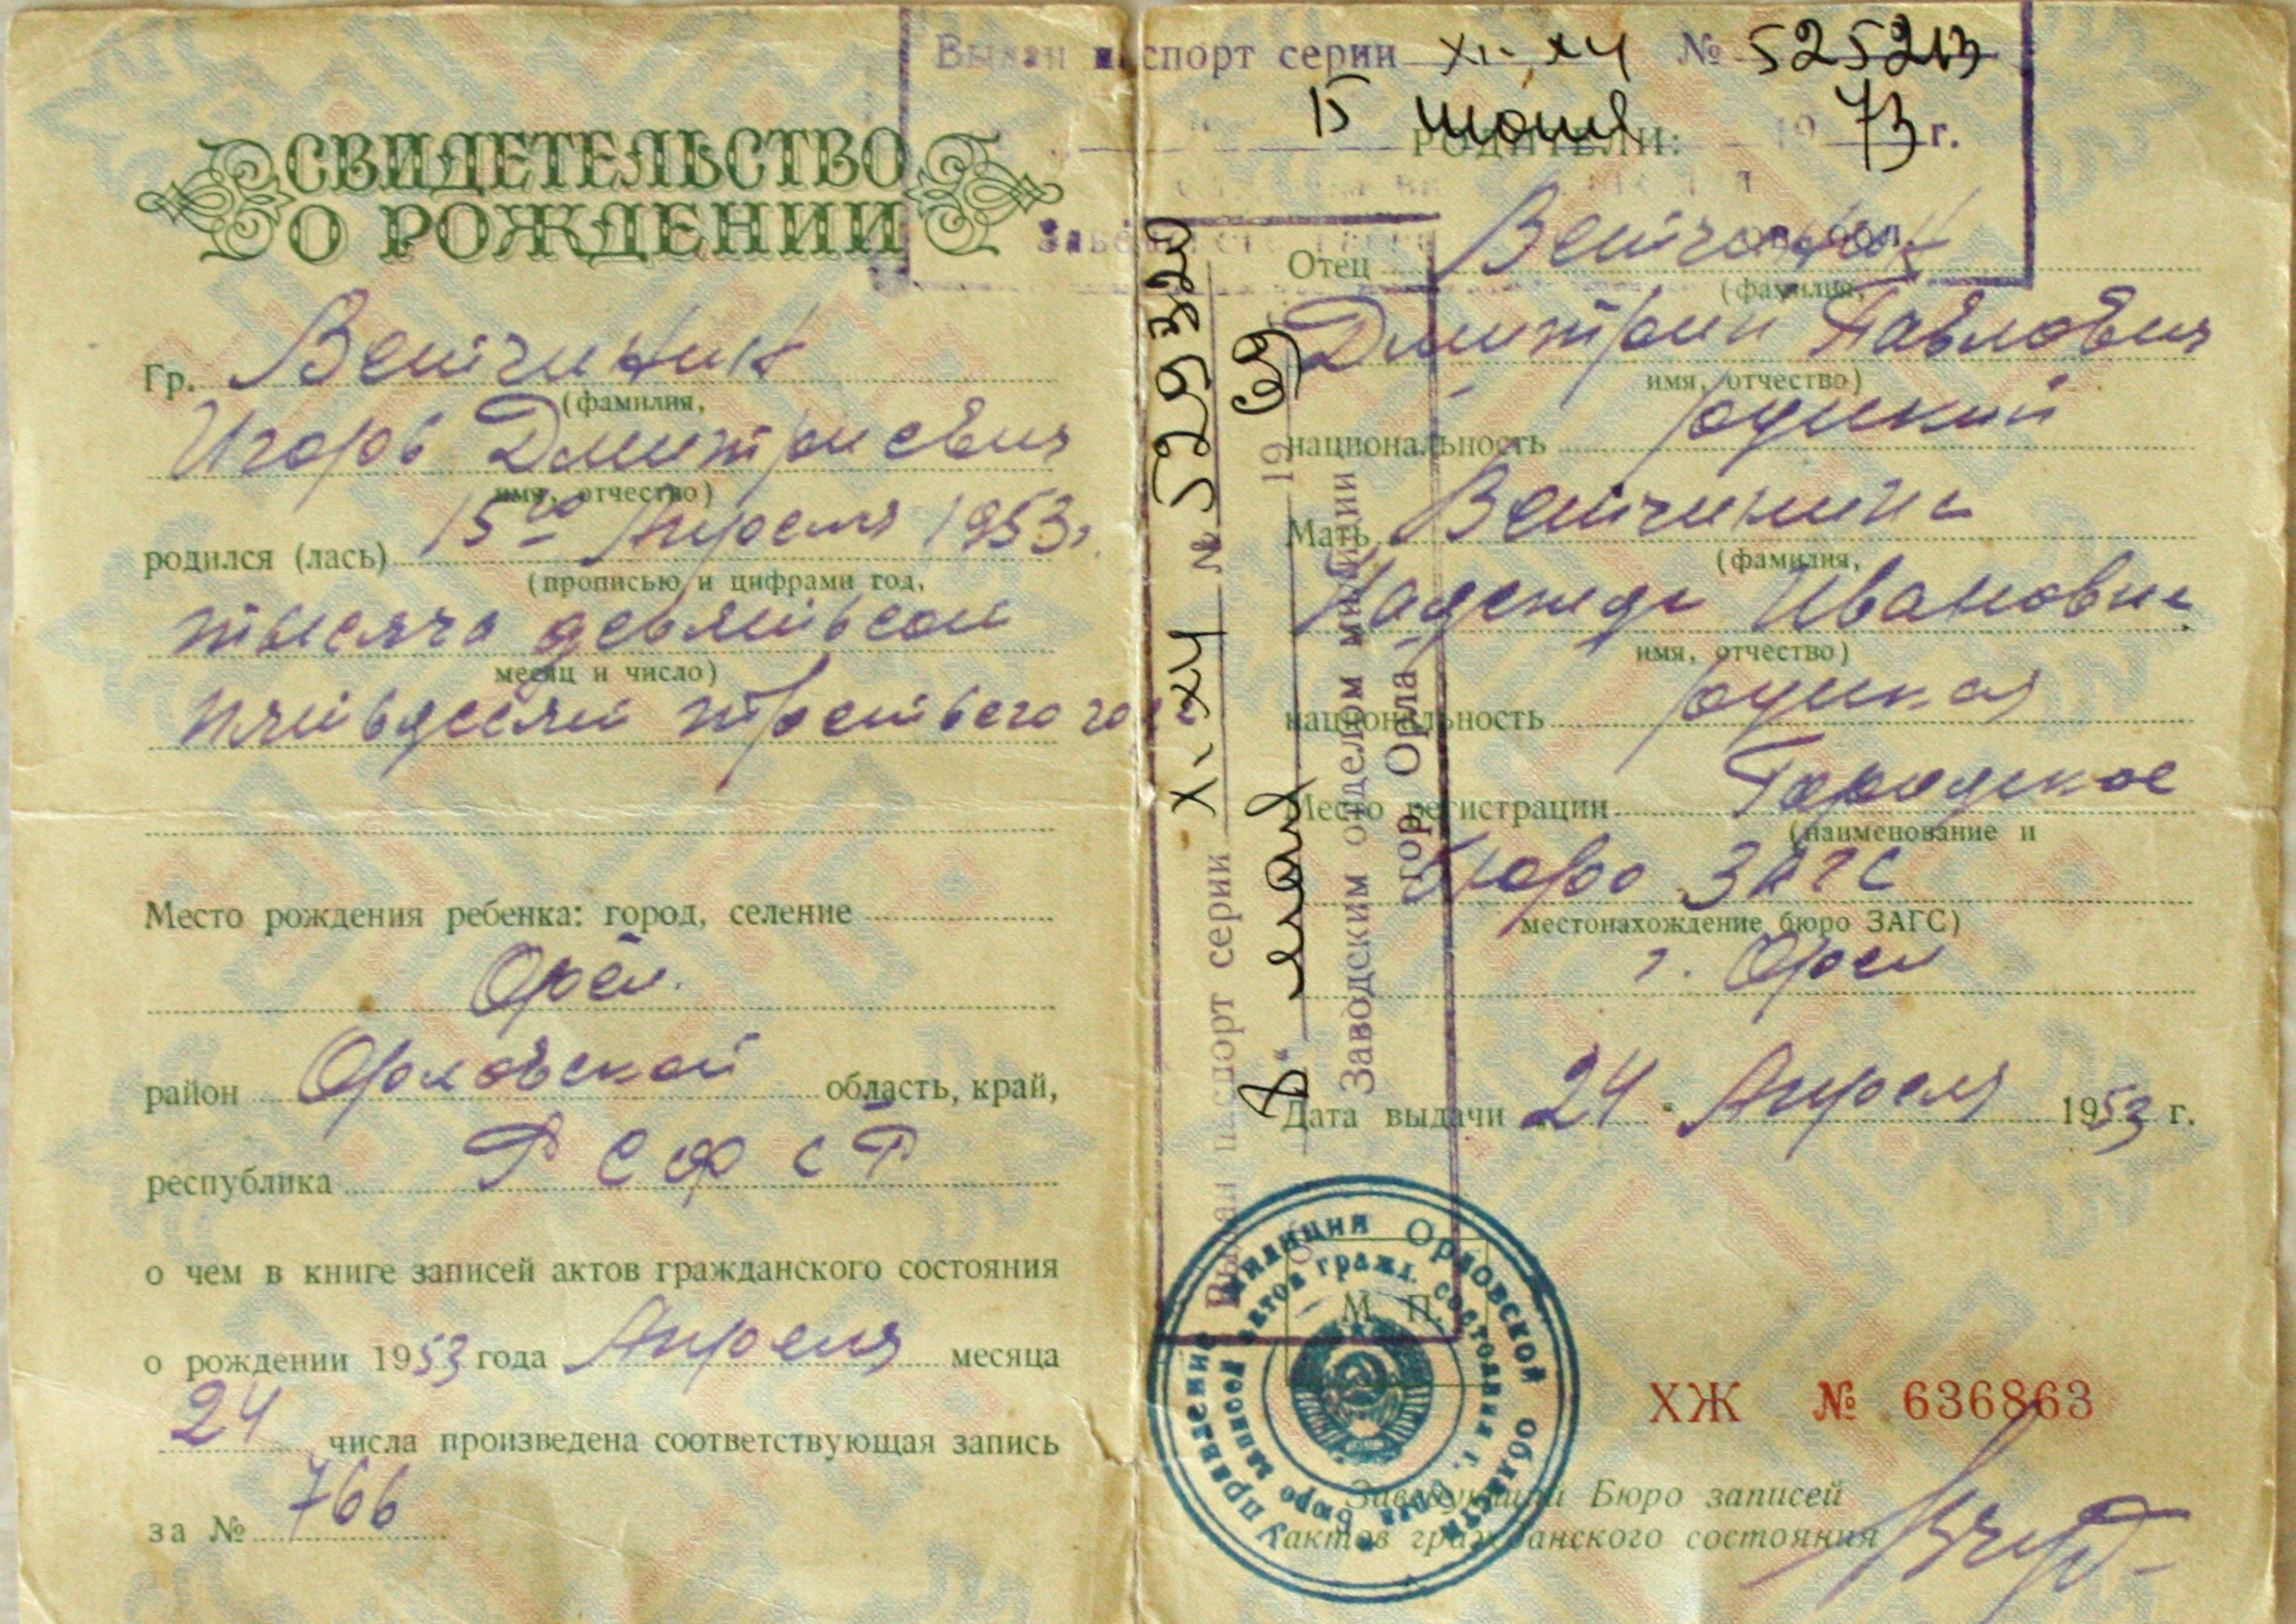 СВИДЕТЕЛЬСТВО
О РОЖДЕНИИ
Гр. Ветчинин
(фамилия,
Игорь Дмитриевич
имя, отчество)
родился (лась) 15го Апреля 1953г
(прописью и цифрами год,
тысяча девятьсот
месяц и число)
пятьдесят третьего года
Место рождения ребенка: город, селение
Орел.
район Орловской область, край,
республика РСФСР
о чем в книге записей актов гражданского состояния
о рождении 1953 года Апреля месяца
24 числа произведена соответствующая запись
за № 766
Выдан паспорт серии XI-ХЧ № 525213
15 июня 1973 г.
РОДИТЕЛИ:
Отец Ветчинин
(фамилия,
Дмитрий Павлович
имя, отчество)
национальность русский
Мать Ветчинина
(фамилия,
Надежда Ивановна
имя, отчество)
национальность русская
Место регистрации Городское
(наименование и
бюро ЗАГС
местонахождение бюро ЗАГС)
г. Орел
Дата выдачи 24 Апреля 1953 г.
М. П.
ХЖ № 636863
Заведующий Бюро записей
актов гражданского состояния
Выдан паспорт серии XI-ХЧ № 529320
8 " мая 1969
Заводским отделом милиции
гор. Орла
Управление милиции Орловской области
бюро записей актов гражд. состояния г. Орла